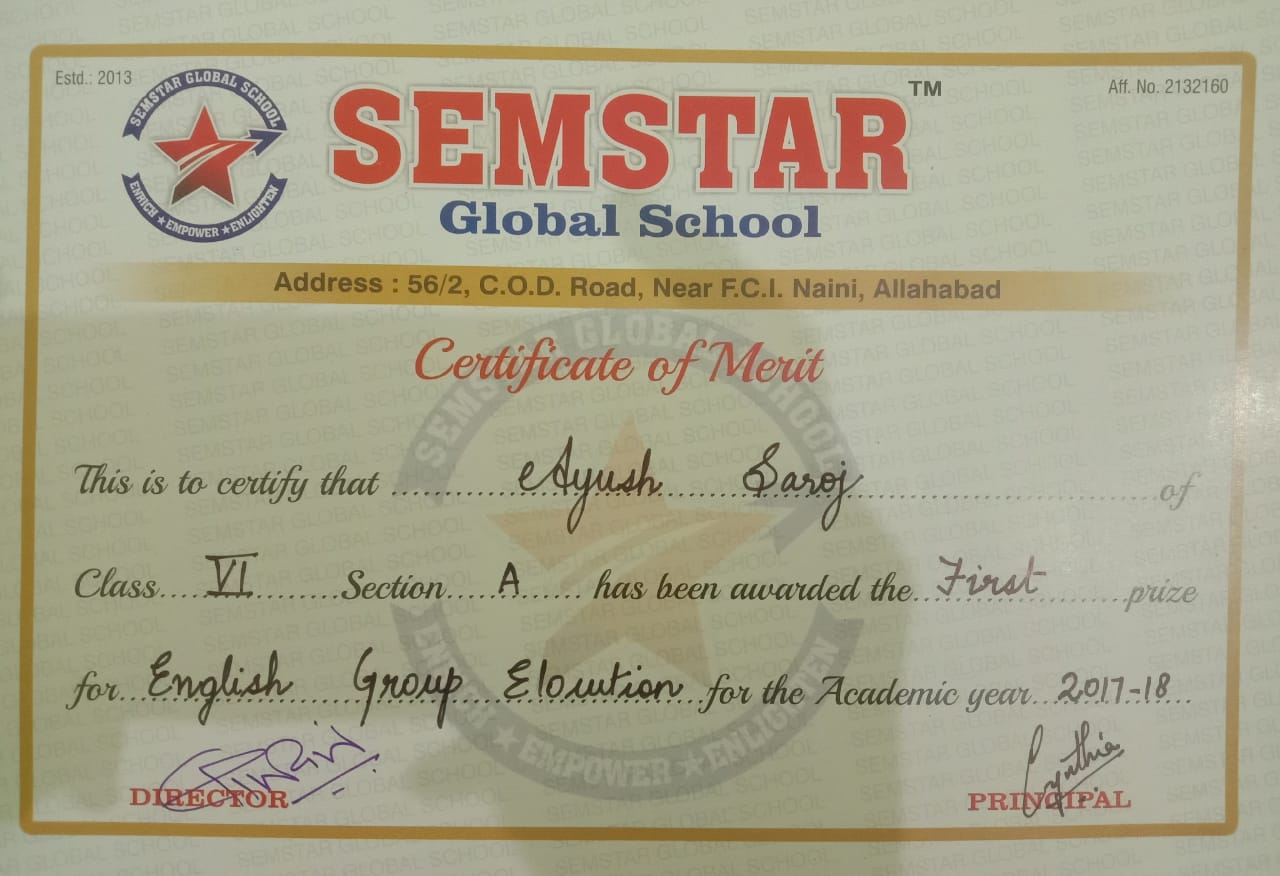 Estd.: 2013
SEMSTAR GLOBAL SCHOOL
ENRICH ★ EMPOWER ★ ENLIGHTEN
Aff. No. 2132160
SEMSTAR™
Global School
Address : 56/2, C.O.D. Road, Near F.C.I. Naini, Allahabad
Certificate of Merit
This is to certify that Ayush Saroj of
Class VI Section A has been awarded the First prize
for English Group Elocution for the Academic year 2017-18
Cynthia
DIRECTOR PRINCIPAL